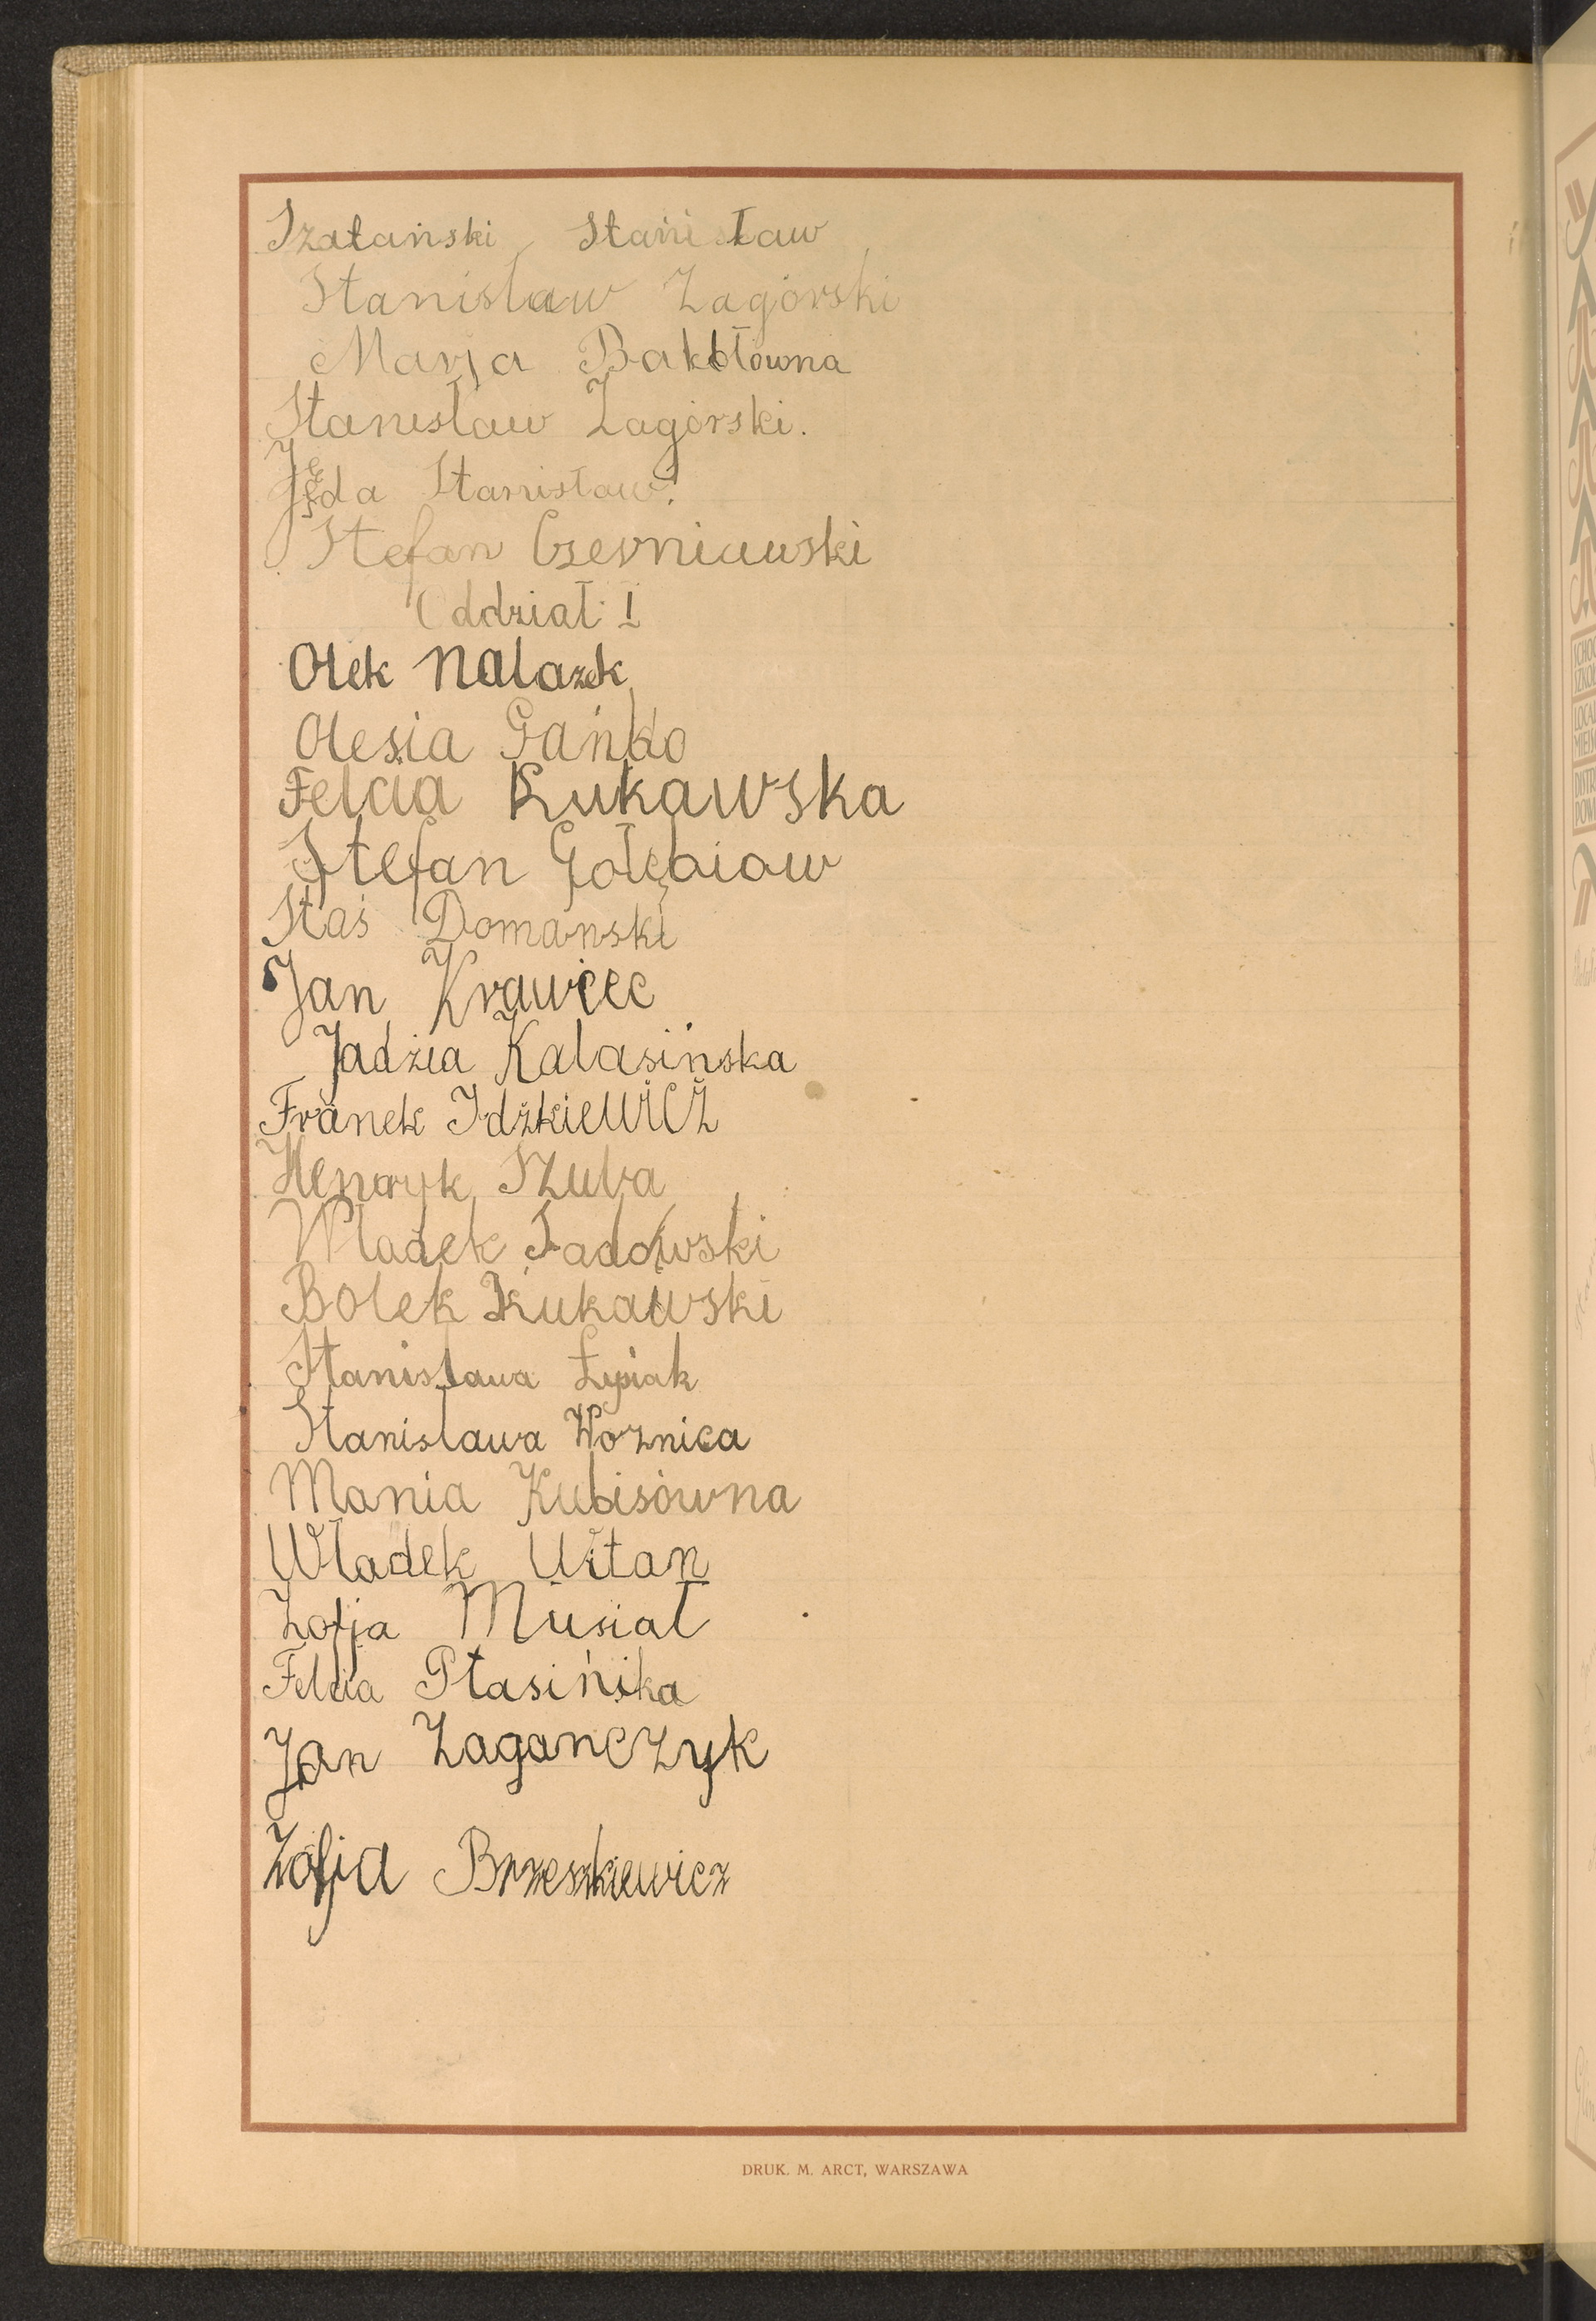 Szatański Stanisław
Stanisław Zagórski
Marja Bakłówna
Stanisław Zagórski.
Stanisław.
Stefan Czerniawski
Oddział I
Olek Nalazek
Olesia Gańko
Felcia Kukawska
Stefan Gołębiow
Staś Domański
Jan Krawiec
Jadzia Kalasińska
Franek Idźkiewicz
Henryk Szuba
Władek Sadowski
Bolek Kukawski
Stanisława Łysiak
Stanisława Woznica
Mania Kubisówna
Władek
Zofja Musiał
Felcia Ptasińska
Jan Zaganczyk
Zofja Brzeszkiewicz
DRUK. M. ARCT, WARSZAWA